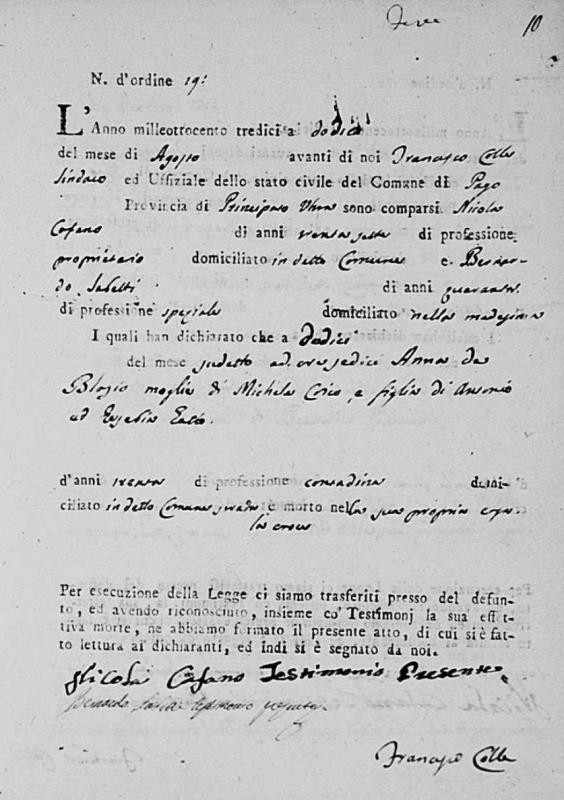 10
N. d'ordine 19:
L'Anno milleottocento tredici a i dodici
del mese di Agosto avanti di noi Francesco Colle
Sindaco ed Uffiziale dello stato civile del Comune di Pago
Provincia di Principato Ultra sono comparsi Nicola
Cafano di anni trenta sette di professione
proprietario domiciliato in detto Comune e Bernar-
do di anni quaranta
di professione speziale domiciliato nella medesima
I quali han dichiarato che a dodici
del mese sudetto ad ore sedici Anna de
Blasio moglie di Michele e figlia di Antonio
ed
d'anni trenta di professione contadina domi-
ciliato in detto Comune è morto nella sua propria
la croce
Per esecuzione della Legge ci siamo trasferiti presso del defun-
to, ed avendo riconosciuto, insieme co' Testimonj la sua effet-
tiva morte, ne abbiamo formato il presente atto, di cui si è fat-
to lettura ai dichiaranti, ed indi si è segnato da noi.
Nicola Cafano Testimonio Presente
testimonio
Francesco Colle